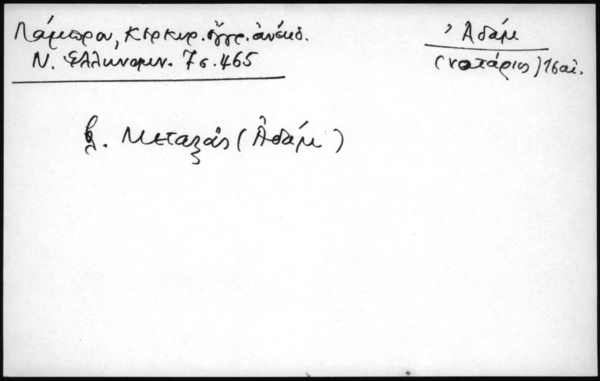 Λάμπρου, Κερκυρ. ἔγγρ. ἀνέκδ.
Ν. Ἑλληνομν. 7 σ. 465
Ἀδάμ
(νοτάριος) 15 αἰ.
βλ. Μεταξᾶς (Ἀδάμ)